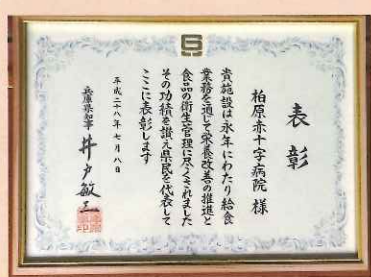 表彰
柏原赤十字病院 様
貴施設は永年にわたり給食
業務を通じて栄養改善の推進と
食品の衛生管理に尽くされました
その功績を讃え県民を代表して
ここに表彰します
平成二十八年七月八日
兵庫県知事 井戸敏三